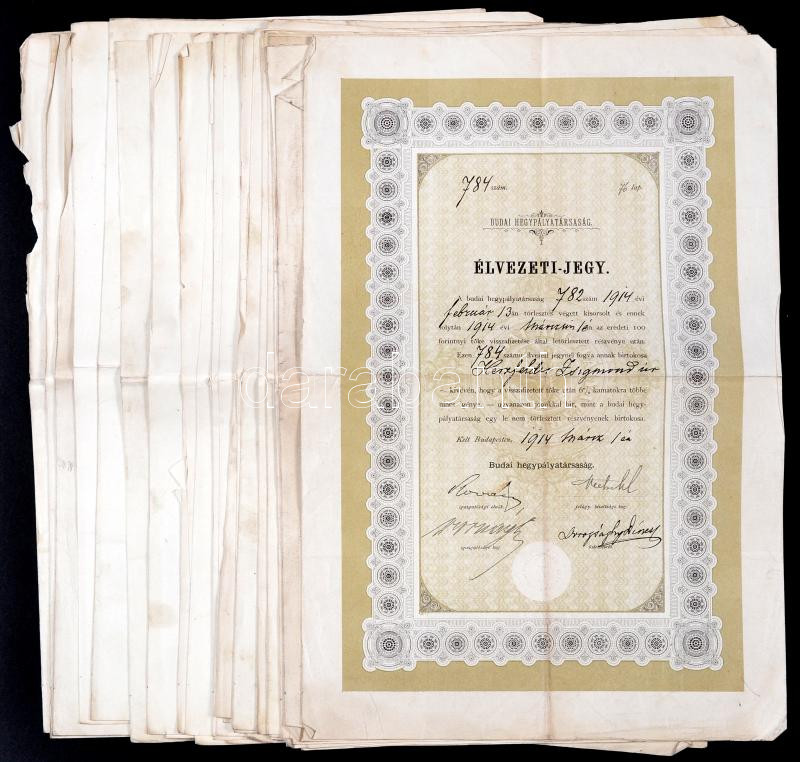 784 szám.
lap.
BUDAI HEGYPÁLYATÁRSASÁG.
ÉLVEZETI-JEGY.
A budai hegypályatársaság 782 szám 1914 évi
február 13án törlesztés végett kisorsolt és ennek
folytán 1914 évi március 1én az eredeti 100
forintnyi tőke visszafizetése által letörlesztett részvénye után.
Ezen 784 számu élvezeti jegynél fogva annak birtokosa
Zsigmond úr
kivévén, hogy a visszafizetett tőke után 6% kamatokra többé
nincs igénye – ugyanazon jogokkal bir, mint a budai hegy-
pályatársaság egy le nem törlesztett részvényének birtokosa.
Kelt Budapesten, 1914 március 1én
Budai hegypályatársaság.
igazgatósági elnök.
felügy. bizottsági tag.
igazgatósági tag.
darabanth